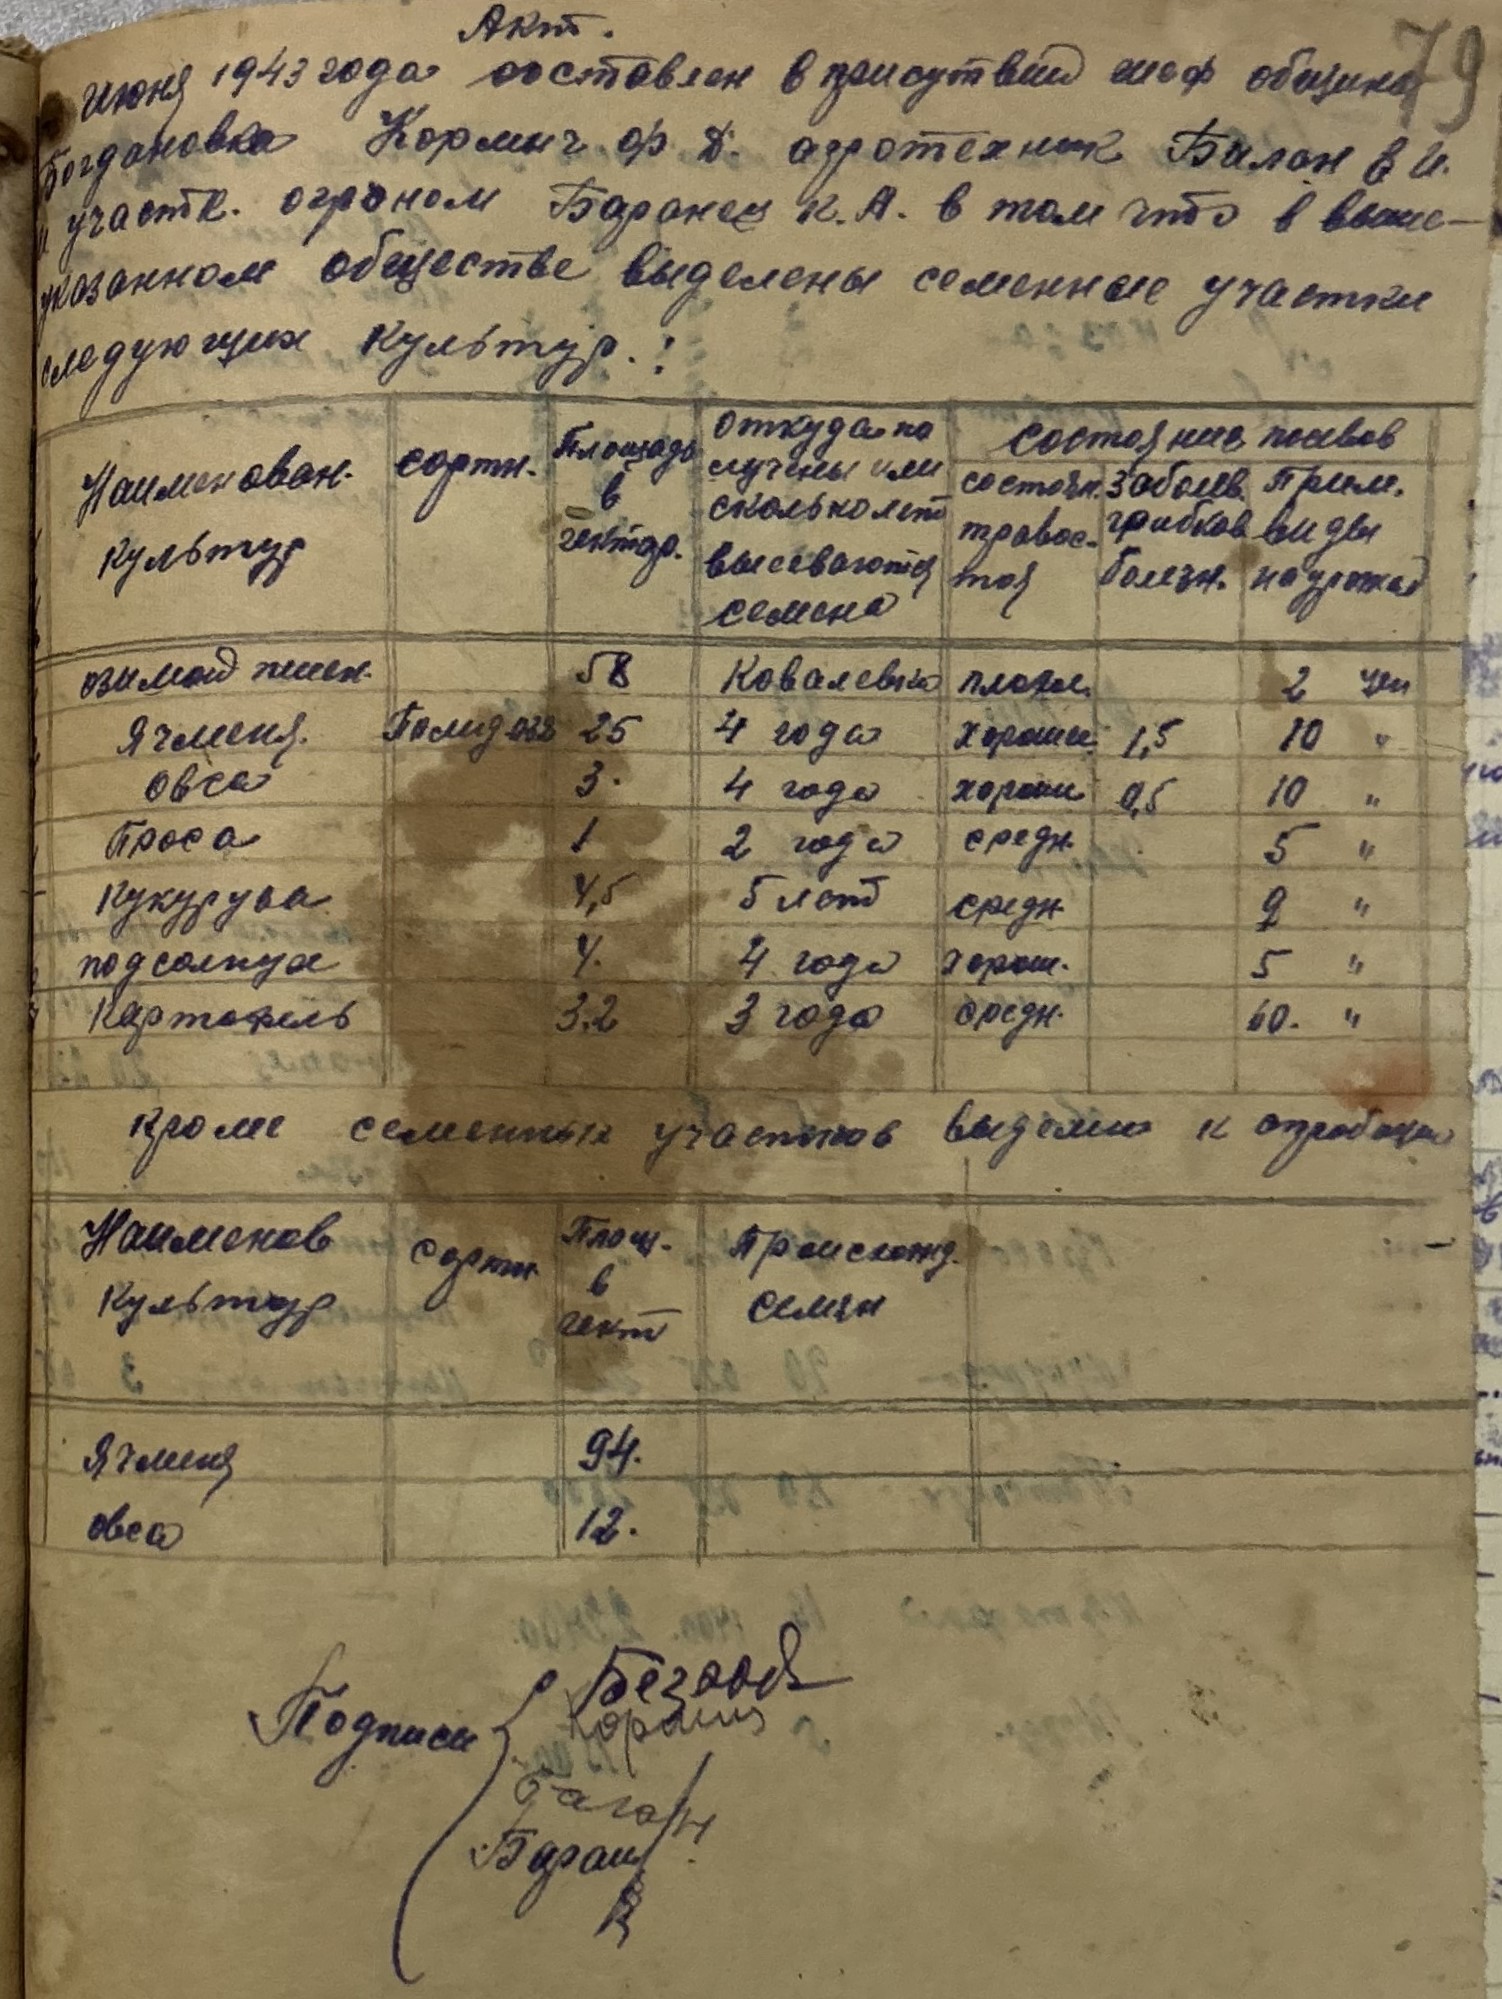 79
Акт.
июня 1943 года составлен в присутствии шеф общины
Богдановка Кормич Ф. Д. агротехник Билан В И.
и участк. агроном Баранец К. А. в том что в выше-
указанном обществе выделены семенные участки
следующих культур. :
Наименован. культур | сортн. | Площадь в гектар. | откуда получены или сколько лет высеваются семена | состояние посевов
состоян. травостоя | заболев. грибков болезн. | Прим. виды на урожай
озимой пшен. | 58 | Ковалевка | плохи. | 2 цен
Ячменя. | 25 | 4 года | хороши | 1,5 | 10 "
овса | 3. | 4 года | хороши | 0,5 | 10 "
Проса | 1 | 2 года | средн. | 5 "
Кукуруза | 4,5 | 5 лет | средн. | 9 "
подсолнуха | 4. | 4 года | хорош. | 5 "
Картофель | 3,2 | 3 года | средн. | 60. "
кроме семенных участков выделено к апробации
Наименов культур | сортн | Площ. в гект | Происхожд. семян
Ячменя | 94.
овса | 12.
Подписи